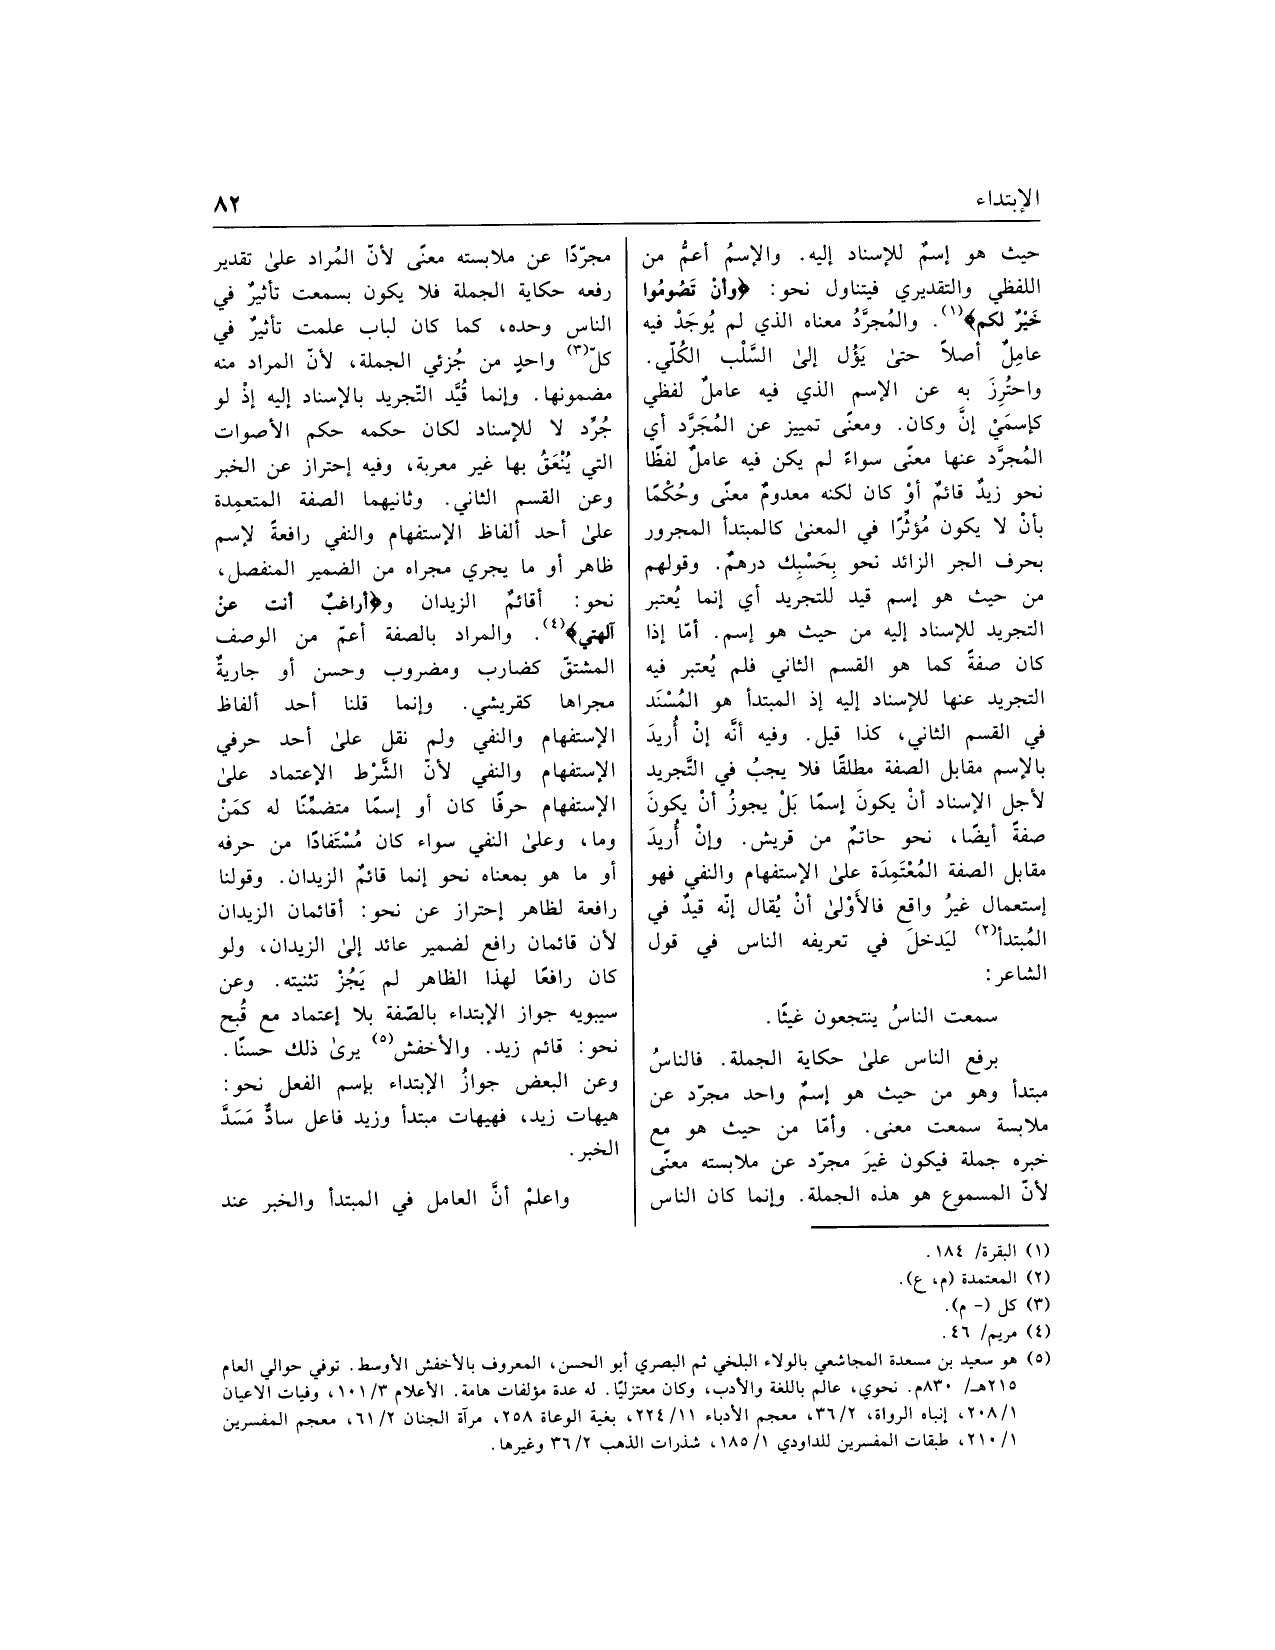 الإبتداء
٨٢
حيث هو إسمٌ للإسناد إليه. والإسمُ أعمُّ من
اللفظي والتقديري فيتناول نحو: ﴿وأنْ تَصُومُوا
خَيْرٌ لكم﴾(١). والمُجرَّدُ معناه الذي لم يُوجَدْ فيه
عامِلٌ أصلاً حتىٰ يَؤُل إلىٰ السَّلْب الكُلّي.
واحتُرِزَ به عن الإسم الذي فيه عاملٌ لفظي
كإسمَيْ إنَّ وكان. ومعنًى تمييز عن المُجَرَّد أي
المُجرَّد عنها معنًى سواءً لم يكن فيه عاملٌ لفظًا
نحو زيدٌ قائمٌ أوْ كان لكنه معدومٌ معنًى وحُكْمًا
بأنْ لا يكون مُؤثِّرًا في المعنىٰ كالمبتدأ المجرور
بحرف الجر الزائد نحو بِحَسْبِك درهمٌ. وقولهم
من حيث هو إسم قيد للتجريد أي إنما يُعتبر
التجريد للإسناد إليه من حيث هو إسم. أمّا إذا
كان صفةً كما هو القسم الثاني فلم يُعتبر فيه
التجريد عنها للإسناد إليه إذ المبتدأ هو المُسْنَد
في القسم الثاني، كذا قيل. وفيه أنَّه إنْ أُريدَ
بالإسم مقابل الصفة مطلقًا فلا يجبُ في التَّجريد
لأجل الإسناد أنْ يكونَ إسمًا بَلْ يجوزُ أنْ يكونَ
صفةً أيضًا، نحو حاتمٌ من قريش. وإنْ أُريدَ
مقابل الصفة المُعْتَمِدَة علىٰ الإستفهام والنفي فهو
إستعمال غيرُ واقع فالأَوْلىٰ أنْ يُقال إنّه قيدٌ في
المُبتدأ(٢) ليَدخلَ في تعريفه الناس في قول
الشاعر:
سمعت الناسُ ينتجعون غيثًا.
برفع الناس علىٰ حكاية الجملة. فالناسُ
مبتدأ وهو من حيث هو إسمٌ واحد مجرّد عن
ملابسة سمعت معنى. وأمّا من حيث هو مع
خبره جملة فيكون غيرَ مجرّد عن ملابسته معنًى
لأنّ المسموع هو هذه الجملة. وإنما كان الناس
مجرّدًا عن ملابسته معنًى لأنّ المُراد علىٰ تقدير
رفعه حكاية الجملة فلا يكون بسمعت تأثيرٌ في
الناس وحده، كما كان لباب علمت تأثيرٌ في
كلّ(٣) واحدٍ من جُزئي الجملة، لأنّ المراد منه
مضمونها. وإنما قُيَّد التّجريد بالإسناد إليه إذْ لو
جُرِّد لا للإسناد لكان حكمه حكم الأصوات
التي يُنْعَقُ بها غير معربة، وفيه إحتراز عن الخبر
وعن القسم الثاني. وثانيهما الصفة المتعمدة
علىٰ أحد ألفاظ الإستفهام والنفي رافعةً لإسم
ظاهر أو ما يجري مجراه من الضمير المنفصل،
نحو: أقائمٌ الزيدان و﴿أراغبٌ أنت عنْ
آلهتي﴾(٤). والمراد بالصفة أعمّ من الوصف
المشتقّ كضارب ومضروب وحسن أو جاريةٌ
مجراها كقريشي. وإنما قلنا أحد ألفاظ
الإستفهام والنفي ولم نقل علىٰ أحد حرفي
الإستفهام والنفي لأنّ الشَّرْط الإعتماد علىٰ
الإستفهام حرفًا كان أو إسمًا متضمِّنًا له كمَنْ
وما، وعلىٰ النفي سواء كان مُسْتَفادًا من حرفه
أو ما هو بمعناه نحو إنما قائمٌ الزيدان. وقولنا
رافعة لظاهر إحتراز عن نحو: أقائمان الزيدان
لأن قائمان رافع لضمير عائد إلىٰ الزيدان، ولو
كان رافعًا لهذا الظاهر لم يَجُزْ تثنيته. وعن
سيبويه جواز الإبتداء بالصّفة بلا إعتماد مع قُبح
نحو: قائم زيد. والأخفش(٥) يرىٰ ذلك حسنًا.
وعن البعض جوازُ الإبتداء بإسم الفعل نحو:
هيهات زيد، فهيهات مبتدأ وزيد فاعل سادٌّ مَسَدَّ
الخبر.
واعلمْ أنَّ العامل في المبتدأ والخبر عند
(١) البقرة/ ١٨٤.
(٢) المعتمدة (م، ع).
(٣) كل (- م).
(٤) مريم/ ٤٦.
(٥) هو سعيد بن مسعدة المجاشعي بالولاء البلخي ثم البصري أبو الحسن، المعروف بالأخفش الأوسط. توفي حوالي العام
٢١٥هـ/ ٨٣٠م. نحوي، عالم باللغة والأدب، وكان معتزليًا. له عدة مؤلفات هامة. الأعلام ٣/ ١٠١، وفيات الاعيان
١/ ٢٠٨، إنباه الرواة، ٢/ ٣٦، معجم الأدباء ١١/ ٢٢٤، بغية الوعاة ٢٥٨، مرآة الجنان ٢/ ٦١، معجم المفسرين
١/ ٢١٠، طبقات المفسرين للداودي ١/ ١٨٥، شذرات الذهب ٢/ ٣٦ وغيرها.